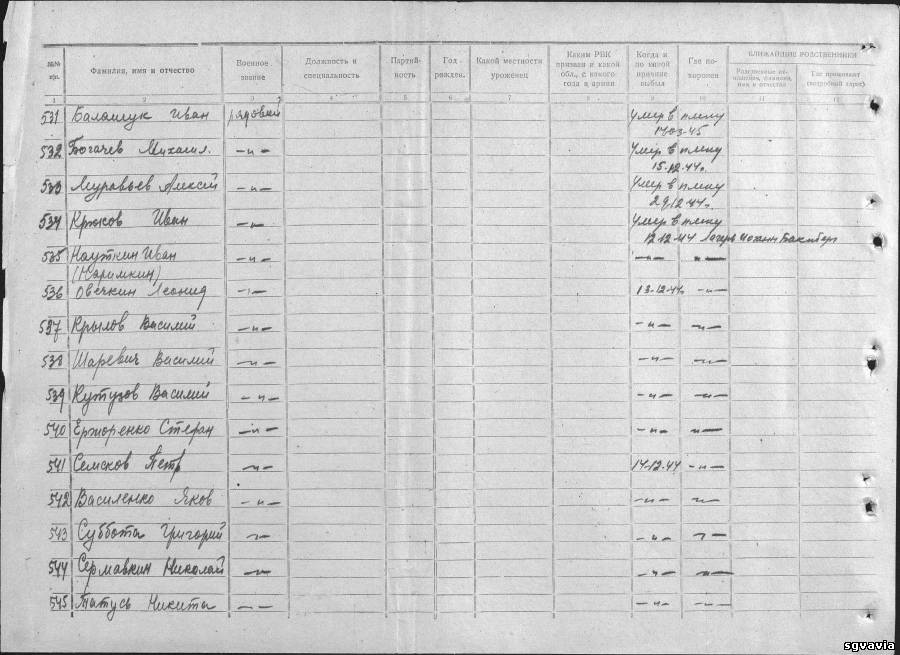 №№ п/п. Фамилия, имя и отчество Военное звание Должность и специальность Партий- ность Год рожден. Какой местности уроженец Каким РВК призван и какой обл., с какого года в армии Когда и по какой причине выбыл Где по- хоронен БЛИЖАЙШИЕ РОДСТВЕННИКИ
Где проживает
1 2 3 4 5 6 7 8 9 10 11 12
531 Балашук Иван рядовой Умер в плену
17.03.45
532 Богачев Михаил. -"- Умер в плену
15.12.44г.
533 Муравьев Алексей -"- Умер в плену
29.12.44г.
534 Крюков Иван -"- Умер в плену
12.12.44 Лагерь
535 Иван -"- -"- -"-
(Наримкин)
536 Овечкин Леонид -"- 13.12.44г. -"-
537 Крылов Василий -"- -"- -"-
538 Шаревич Василий -"- -"- -"-
539 Кутузов Василий -"- -"- -"-
540 Ержоренко Стефан -"- -"- -"-
541 Семсков Петр -"- 14.12.44 -"-
542 Василенко Яков -"- -"- -"-
543 Суббота Григорий -"- -"- -"-
544 Сермавкин Николай -"- -"- -"-
545 Татусь Никита -"- -"- -"-
sgvavia